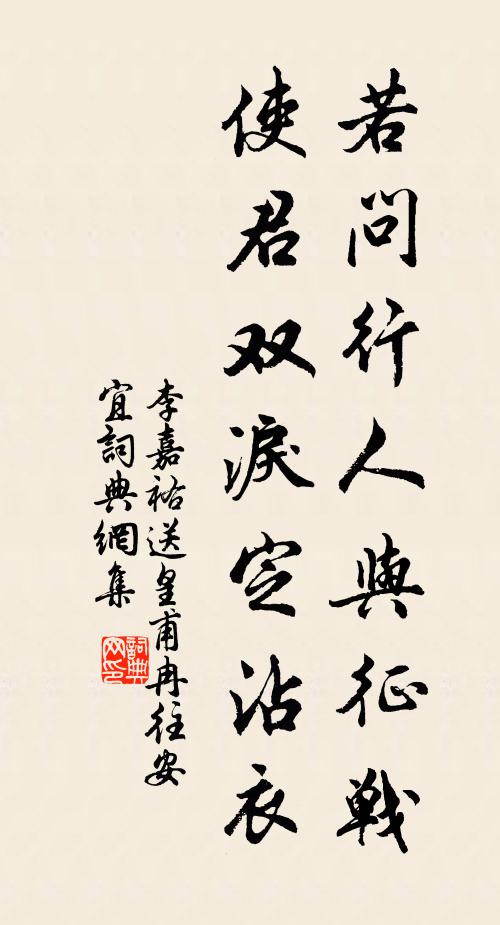 若问行人與征戦
使君双淚定沾衣
李嘉祐送皇甫冉往安
宜詞典網集
詞典
网印